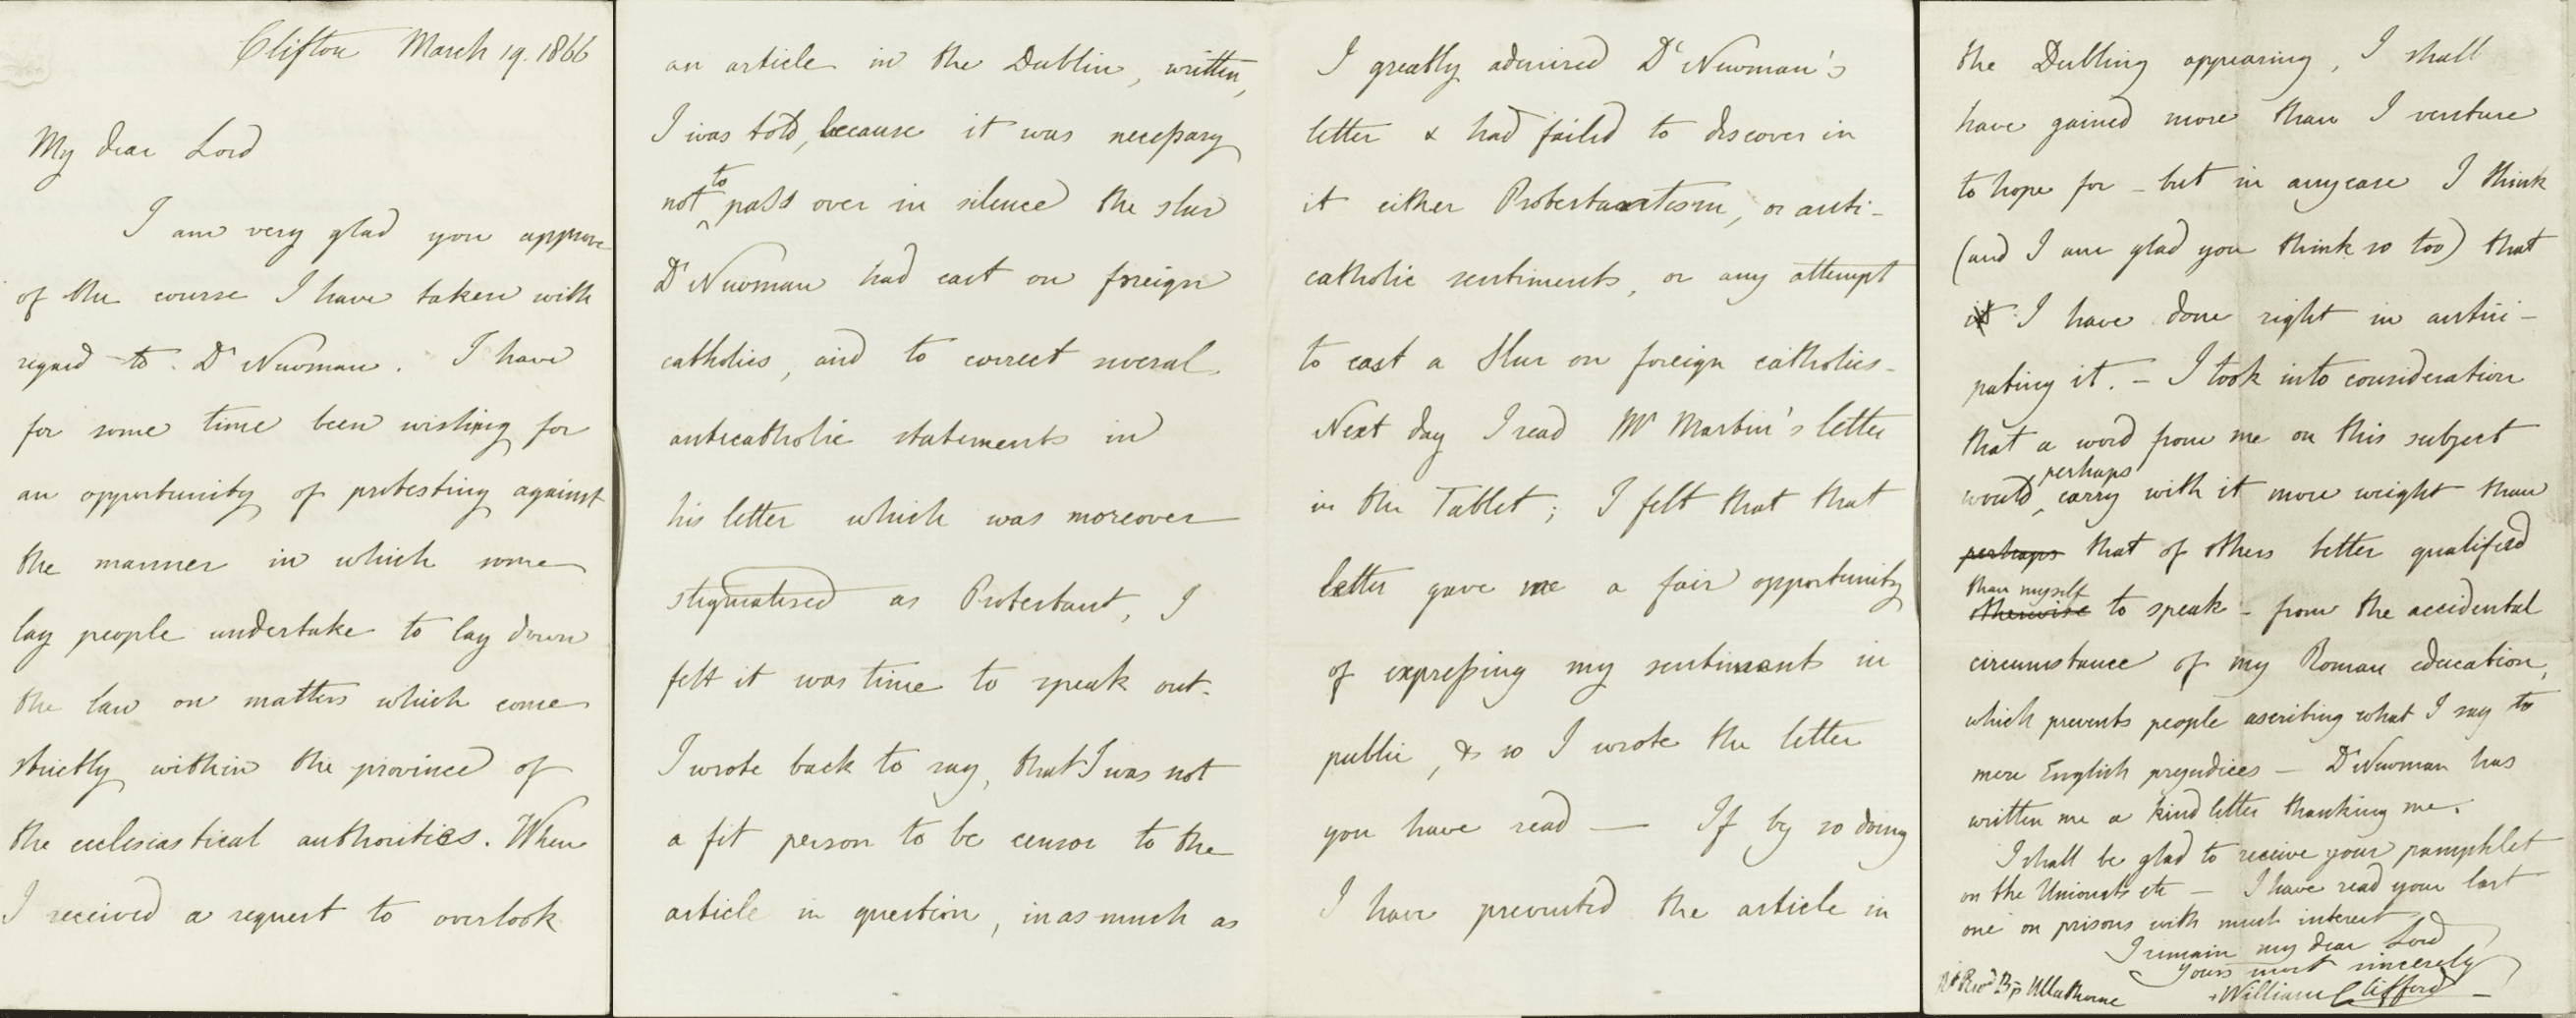 Clifton March 19. 1866
My dear Lord
I am very glad you approve
of the course I have taken with
regard to Dr Newman. I have
for some time been wishing for
an opportunity of protesting against
the manner in which some
lay people undertake to lay down
the law on matters which come
strictly within the province of
the ecclesiastical authorities. When
I received a request to overlook
an article in the Dublin, written,
I was told, because it was necessary
not to pass over in silence the slur
Dr Newman had cast on foreign
catholics, and to correct several
anticatholic statements in
his letter which was moreover
stigmatised as Protestant, I
felt it was time to speak out.
I wrote back to say, that I was not
a fit person to be censor to the
article in question, in as much as
I greatly admired Dr Newman's
letter & had failed to discover in
it either Protestantism, or anti-
catholic sentiments, or any attempt
to cast a slur on foreign catholics -
Next day I read Mr Martin's letter
in the Tablet; I felt that that
letter gave me a fair opportunity
of expressing my sentiments in
public, & so I wrote the letter
you have read — If by so doing
I have prevented the article in
the Dubling appearing, I shall
have gained more than I venture
to hope for - but in anycase I think
(and I am glad you think so too) that
it I have done right in antici-
pating it. - I took into consideration
that a word from me on this subject
would perhaps carry with it more weight than
perhaps that of others better qualified
than myself
otherwise to speak - from the accidental
circumstance of my Roman education,
which prevents people ascribing what I say to
mere English prejudices — Dr Newman has
written me a kind letter thanking me.
I shall be glad to receive your pamphlet
on the Unionists etc — I have read your last
one on prisons with much interest
I remain my dear Lord
Yours most sincerely
+William Clifford
Rt Revd Bp Ullathorne